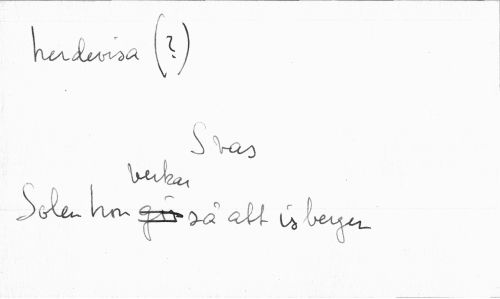 herdevisa (?)
Svas
verkar
Solen hon gör så att isbergen